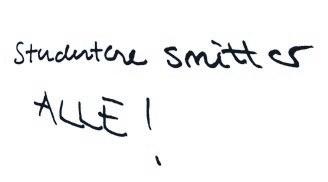 Studentere smitter
ALLE!